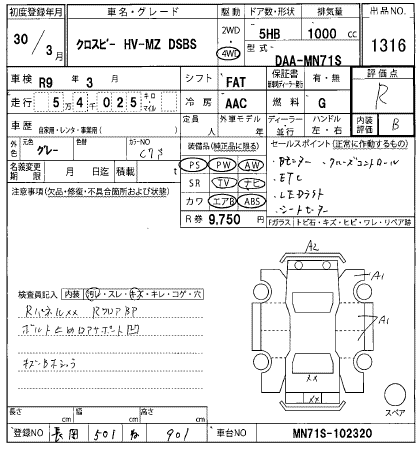 初度登録年月 車名・グレード 駆動 ドア数・形状 排気量 出品NO.
30年/3月 クロスビー HV-MZ DSBS 2WD・4WD 5HB 1000 cc 1316
型式 DAA-MN71S
車検 R9 年 3 月 シフト FAT 保証書 有・無 評価点
走行 5万4千025 キロ・マイル 冷房 AAC 燃料 G R
車歴 自家用・レンタ・事業用( ) 定員 人 外車モデル 年 ディーラー・並行 ハンドル 左・右 内装評価 B
外色 元色 グレー 色替 カラーNO 装備品(純正品に限る) セールスポイント(正常に作動するもの)
名義変更期限 月 日迄 積載 t PS PW AW
注意事項(欠品・修復・不具合箇所および状態) SR TV ナビ ・ETC
カワ エアB ABS ・LEDライト
R券 9,750円 ・シートヒーター
Fガラス・トビ石・キズ・ヒビ・ワレ・リペア跡
A2
A1
検査員記入 内装 汚レ・スレ・キズ・キレ・コゲ・穴
A1
××
××
スペア
長さ cm 幅 cm 高さ cm
登録NO 長岡 501 901 車台NO MN71S-102320